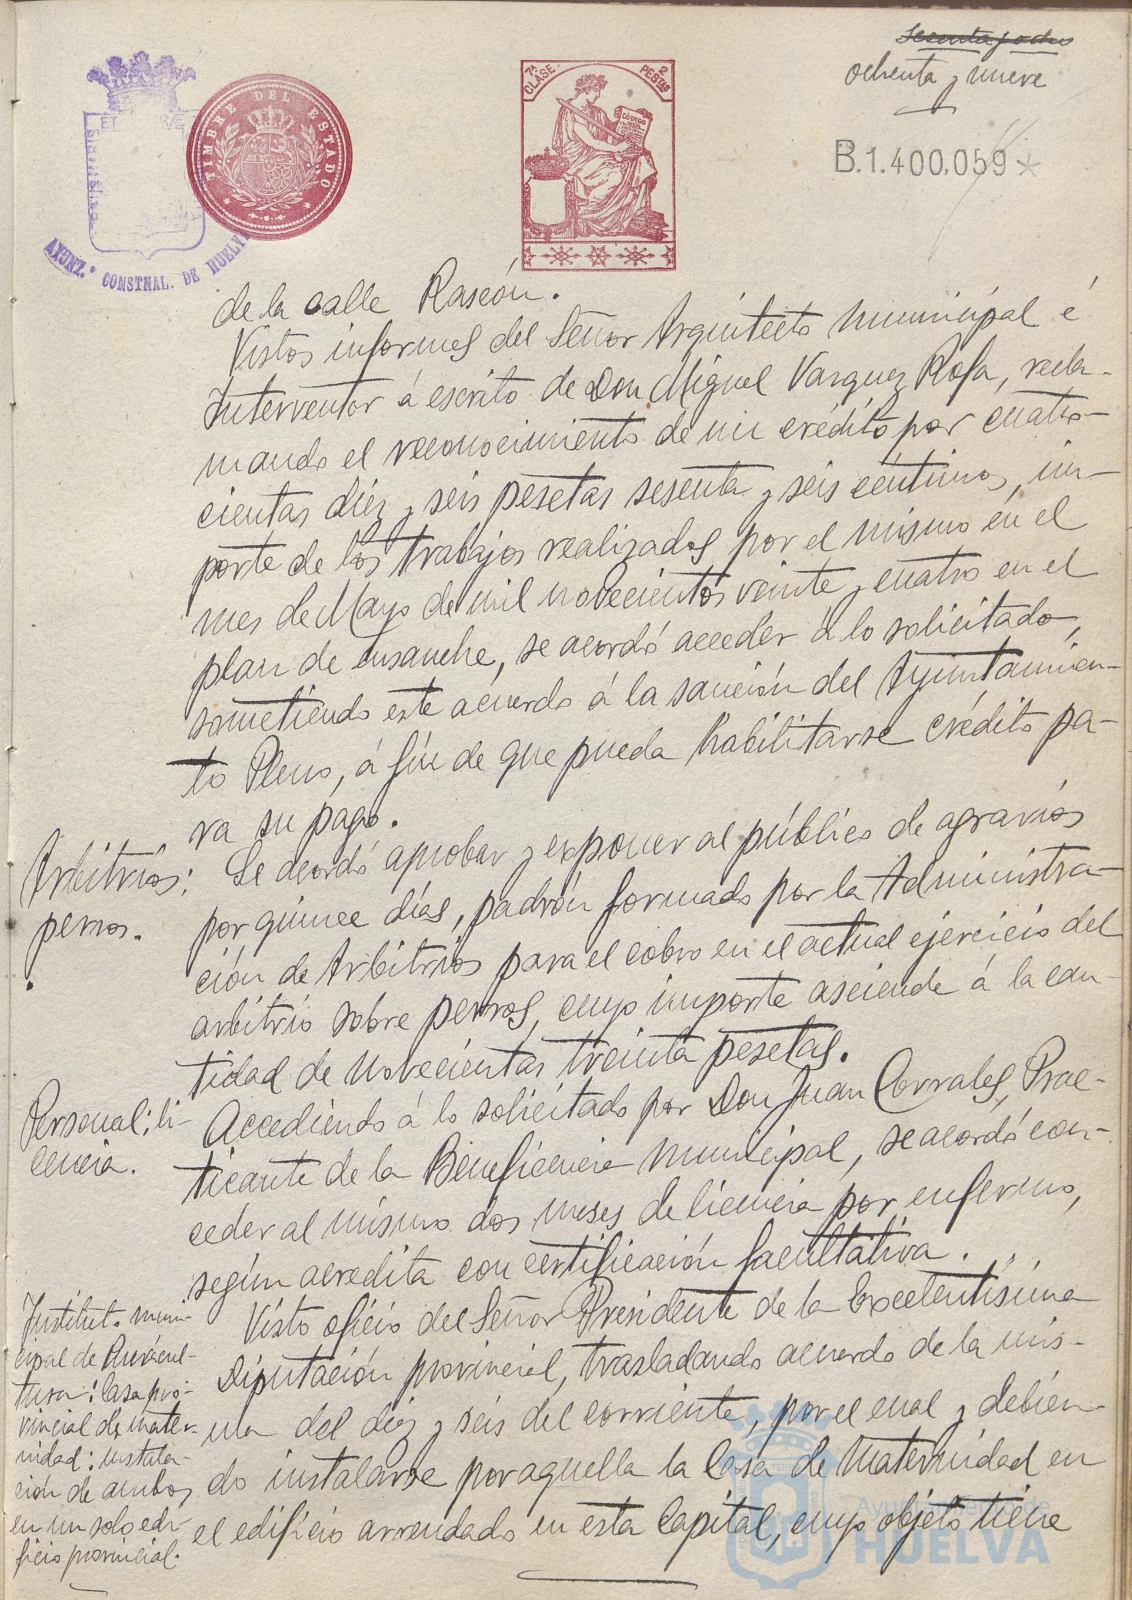 ochenta y nueve
B.1.400.059*
TIMBRE DEL ESTADO
7ª CLASE. 2 PESETAS
CÓDIGO
AYUNT.º CONSTNAL. DE HUELVA
de la calle Rascón.
Vistos informes del Señor Arquitecto Municipal é
Interventor á escrito de Don Miguel Vazquez Rofa, recla-
mando el reconocimiento de un crédito por cuatro-
cientas diez y seis pesetas sesenta y seis céntimos, im-
porte de los trabajos realizados por el mismo en el
mes de Mayo de mil novecientos veinte y cuatro en el
plan de ensanche, se acordó acceder á lo solicitado,
sometiendo este acuerdo á la sanción del Ayuntamien-
to Pleno, á fin de que pueda habilitarse crédito pa-
ra su pago.
Arbitrios:
perros.
Se acordó aprobar y exponer al público de agravios
por quince días, padrón formado por la Administra-
ción de Arbitrios para el cobro en el actual ejercicio del
arbitrio sobre perros, cuyo importe asciende á la can-
tidad de novecientas treinta pesetas.
Personal: li-
cencia.
Accediendo á lo solicitado por Don Juan Corrales, Prac-
ticante de la Beneficencia Municipal, se acordó con-
ceder al mismo dos meses de licencia por enfermo,
según acredita con certificación facultativa.
Instituto muni-
cipal de Puericul-
tura: Casa pro-
vincial de mater-
nidad: instala-
ción de ambos
en un solo edi-
ficio provincial.
Visto oficio del Señor Presidente de la Excelentísima
Diputación provincial, trasladando acuerdo de la mis-
ma del diez y seis del corriente, por el cual y debien-
do instalarse por aquella la Casa de Maternidad en
el edificio arrendado en esta Capital, cuyo objeto tiene
Ayuntamiento de
HUELVA